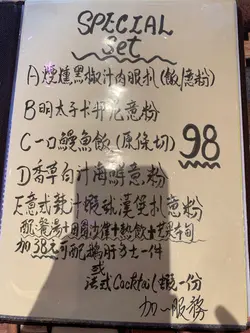 SPECIAL
Set
A)煙燻黑椒汁肉眼扒(飯/意粉)
B)明太子卡邦尼意粉
C)一口鰻魚飯(原條切)
98
D)香草白汁海鮮意粉
E)意式辣汁漢堡扒意粉
配餐湯+田園沙律+熱飲+芝麻布甸
加38元可配鵝肝多士一件
或
法式Cocktail蝦一份
加一服務